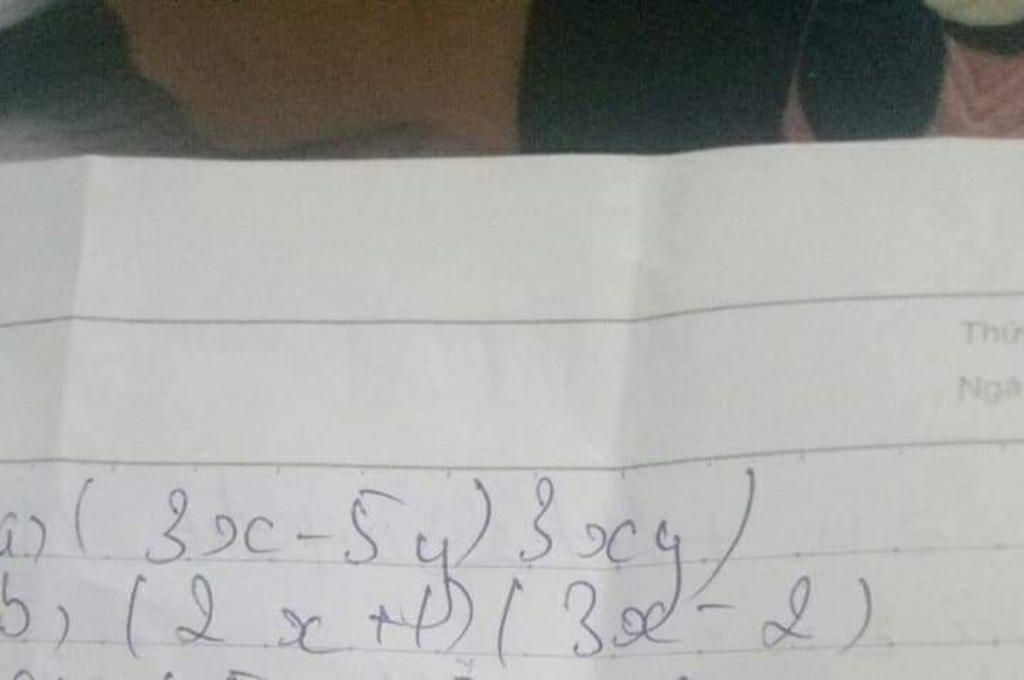 Thứ
Ngà
a) ( 3x - 5y ) 3xy )
b) ( 2x + 1 ) ( 3x - 2 )